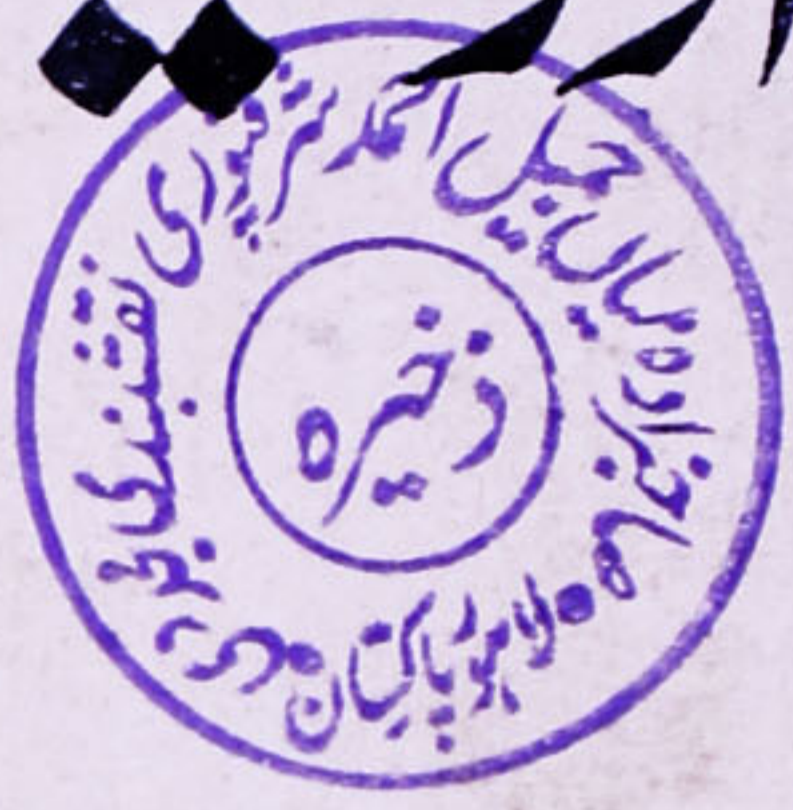 ذخیره
صاحبزاده میاں جمیل احمد شرقپوری نقشبندی مجددی
لاہور پاکستان